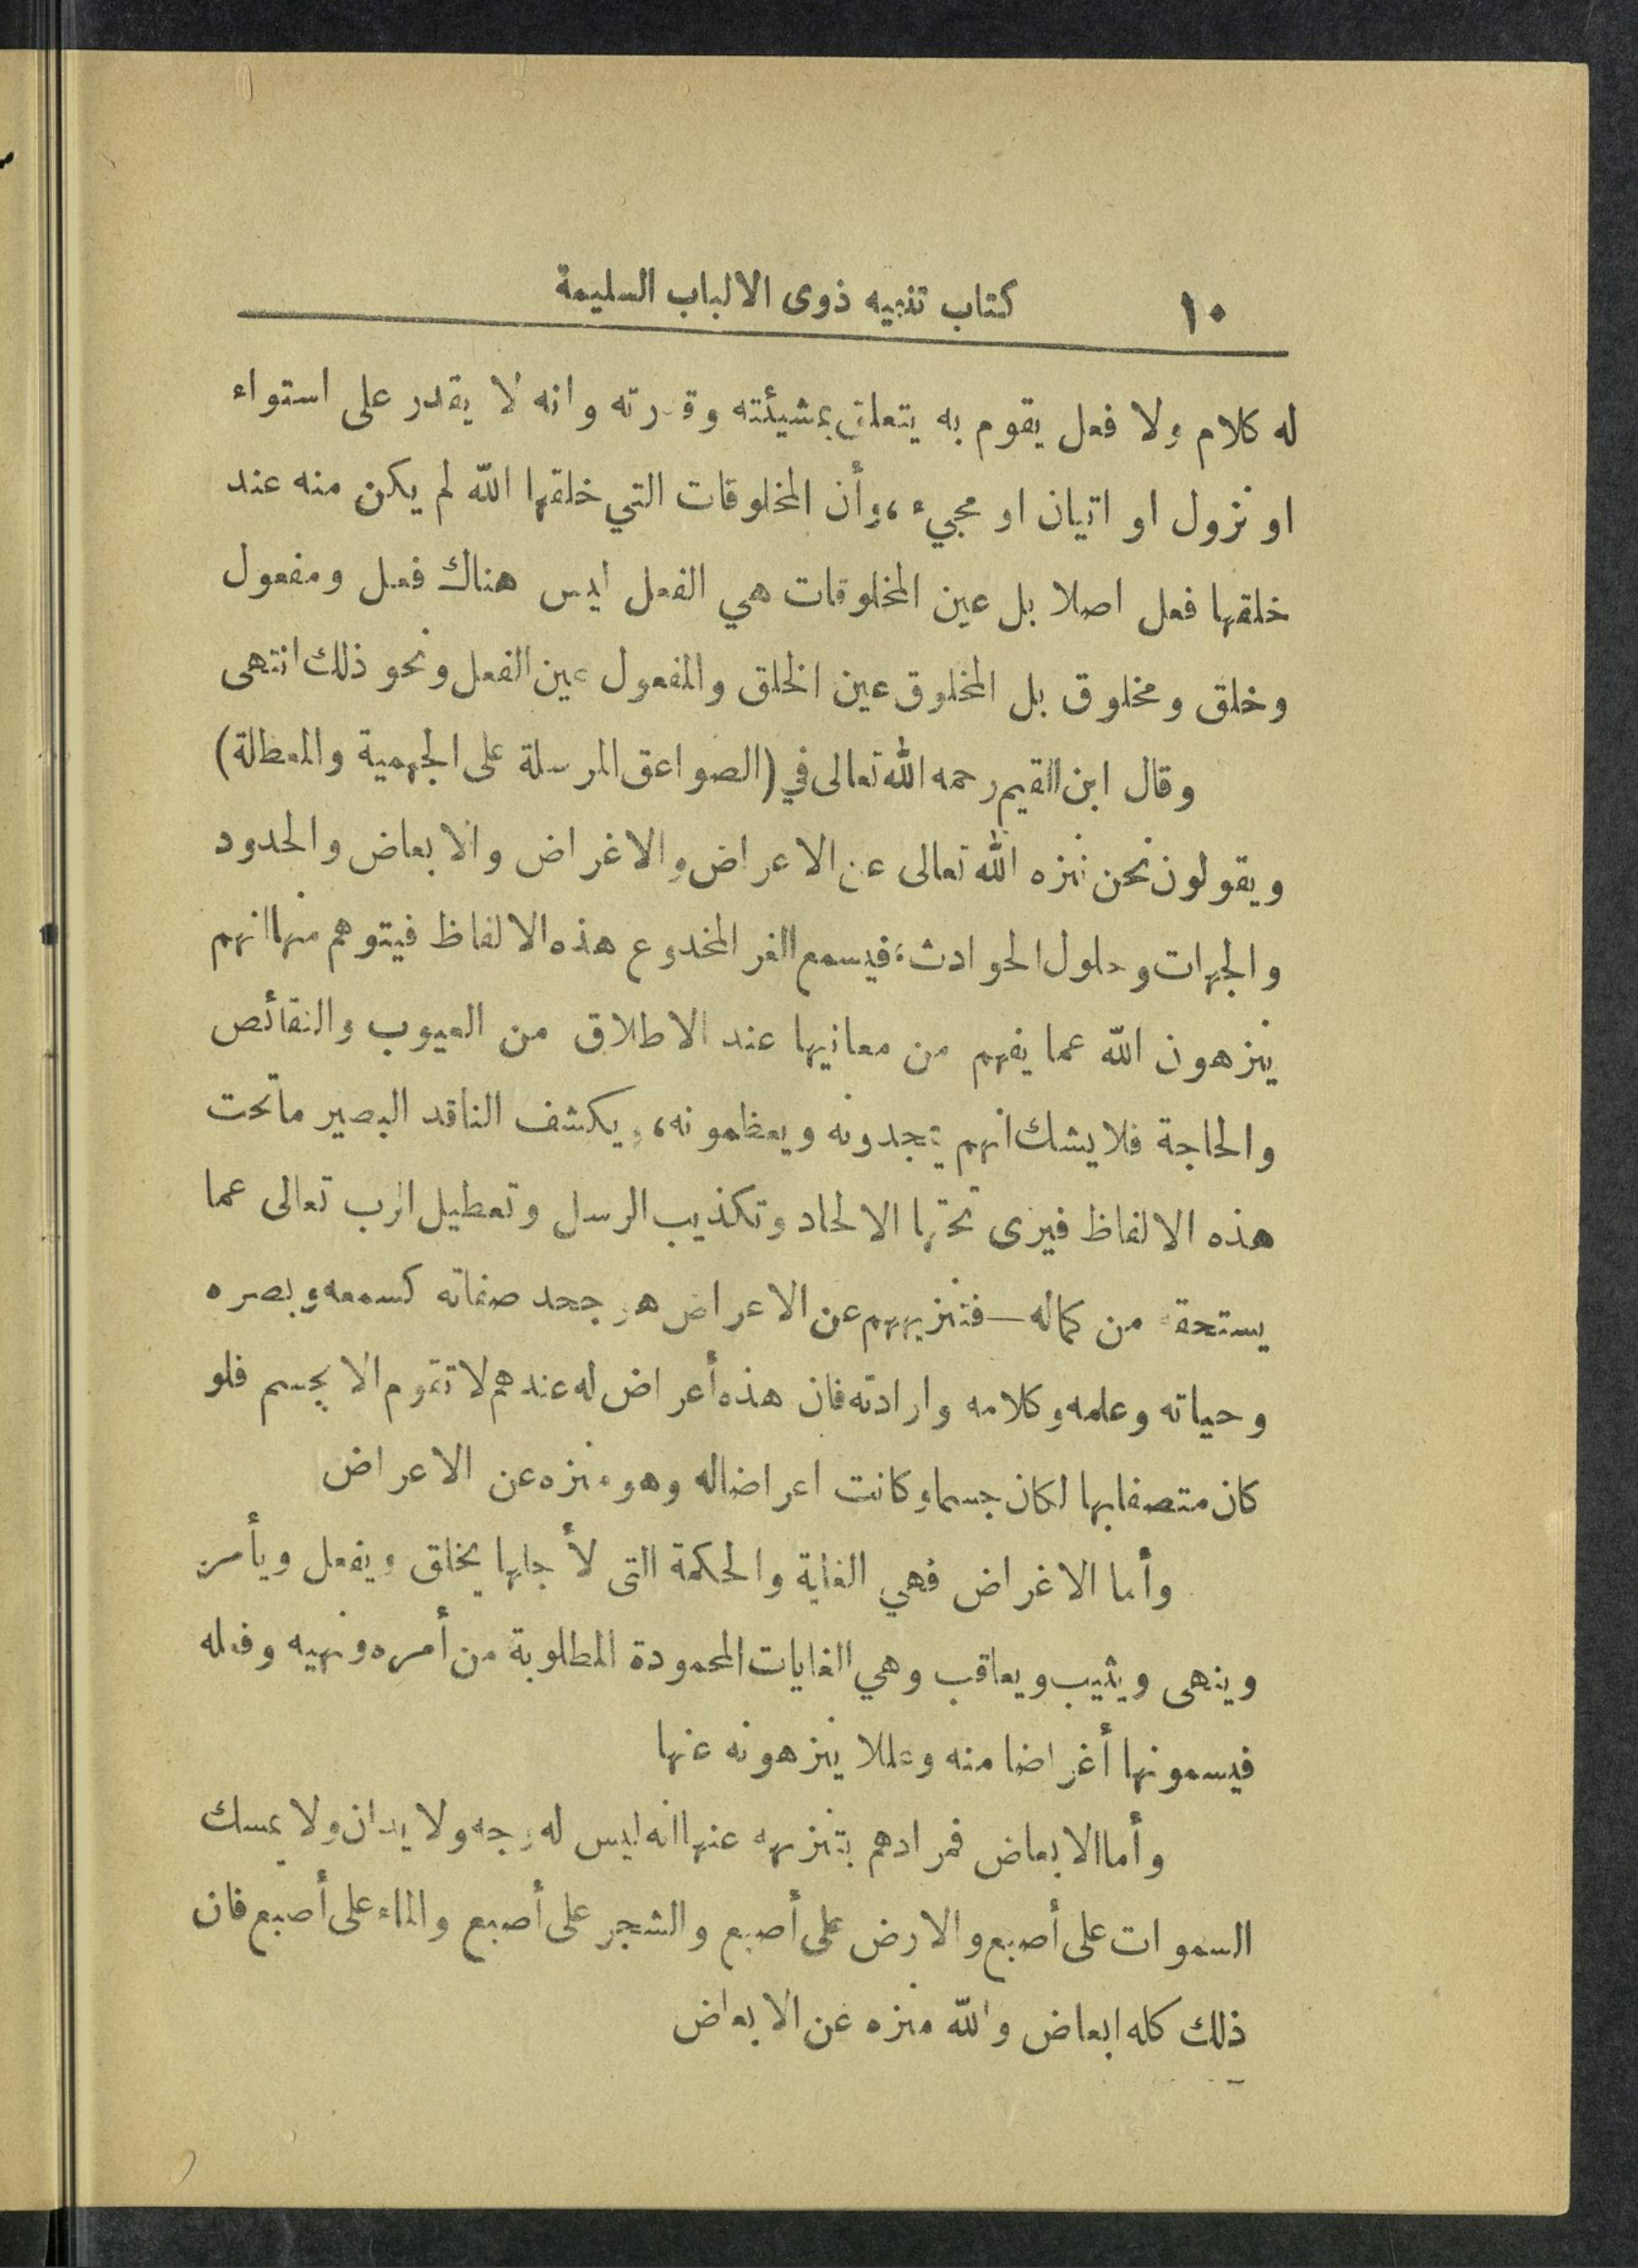 ١٠ كتاب تنبيه ذوى الالباب السليمة
له كلام ولا فعل يقوم به يتعلق بمشيئته وقدرته وانه لا يقدر على استواء
او نزول او اتيان او مجيء، وأن المخلوقات التي خلقها الله لم يكن منه عند
خلقها فعل اصلا بل عين المخلوقات هي الفعل ليس هناك فعل ومفعول
وخلق ومخلوق بل المخلوق عين الخلق والمفعول عين الفعل ونحو ذلك انتهى
وقال ابن القيم رحمه الله تعالى في (الصواعق المرسلة على الجهمية والمعطلة)
ويقولون نحن ننزه الله تعالى عن الاعراض والاغراض والابعاض والحدود
والجهات وحلول الحوادث، فيسمع الغر المخدوع هذه الالفاظ فيتوهم منها انهم
ينزهون الله عما يفهم من معانيها عند الاطلاق من العيوب والنقائص
والحاجة فلا يشك انهم يمجدونه ويعظمونه، ويكشف الناقد البصير ما تحت
هذه الالفاظ فيرى تحتها الالحاد وتكذيب الرسل وتعطيل الرب تعالى عما
يستحقه من كماله — فتنزيههم عن الاعراض هو جحد صفاته كسمعه وبصره
وحياته وعلمه وكلامه وارادته فان هذه أعراض له عندهم لا تقوم الا بجسم فلو
كان متصفا بها لكان جسما وكانت اعراضا له وهو منزه عن الاعراض
وأما الاغراض فهي الغاية والحكمة التى لأجلها يخلق ويفعل ويأمر
وينهى ويثيب ويعاقب وهي الغايات المحمودة المطلوبة من أمره ونهيه وفعله
فيسمونها أغراضا منه وعللا ينزهونه عنها
وأما الابعاض فمرادهم بتنزيهه عنها انه ليس له وجه ولا يدان ولا يمسك
السموات على أصبع والارض على أصبع والشجر على أصبع والماء على أصبع فان
ذلك كله ابعاض والله منزه عن الابعاض